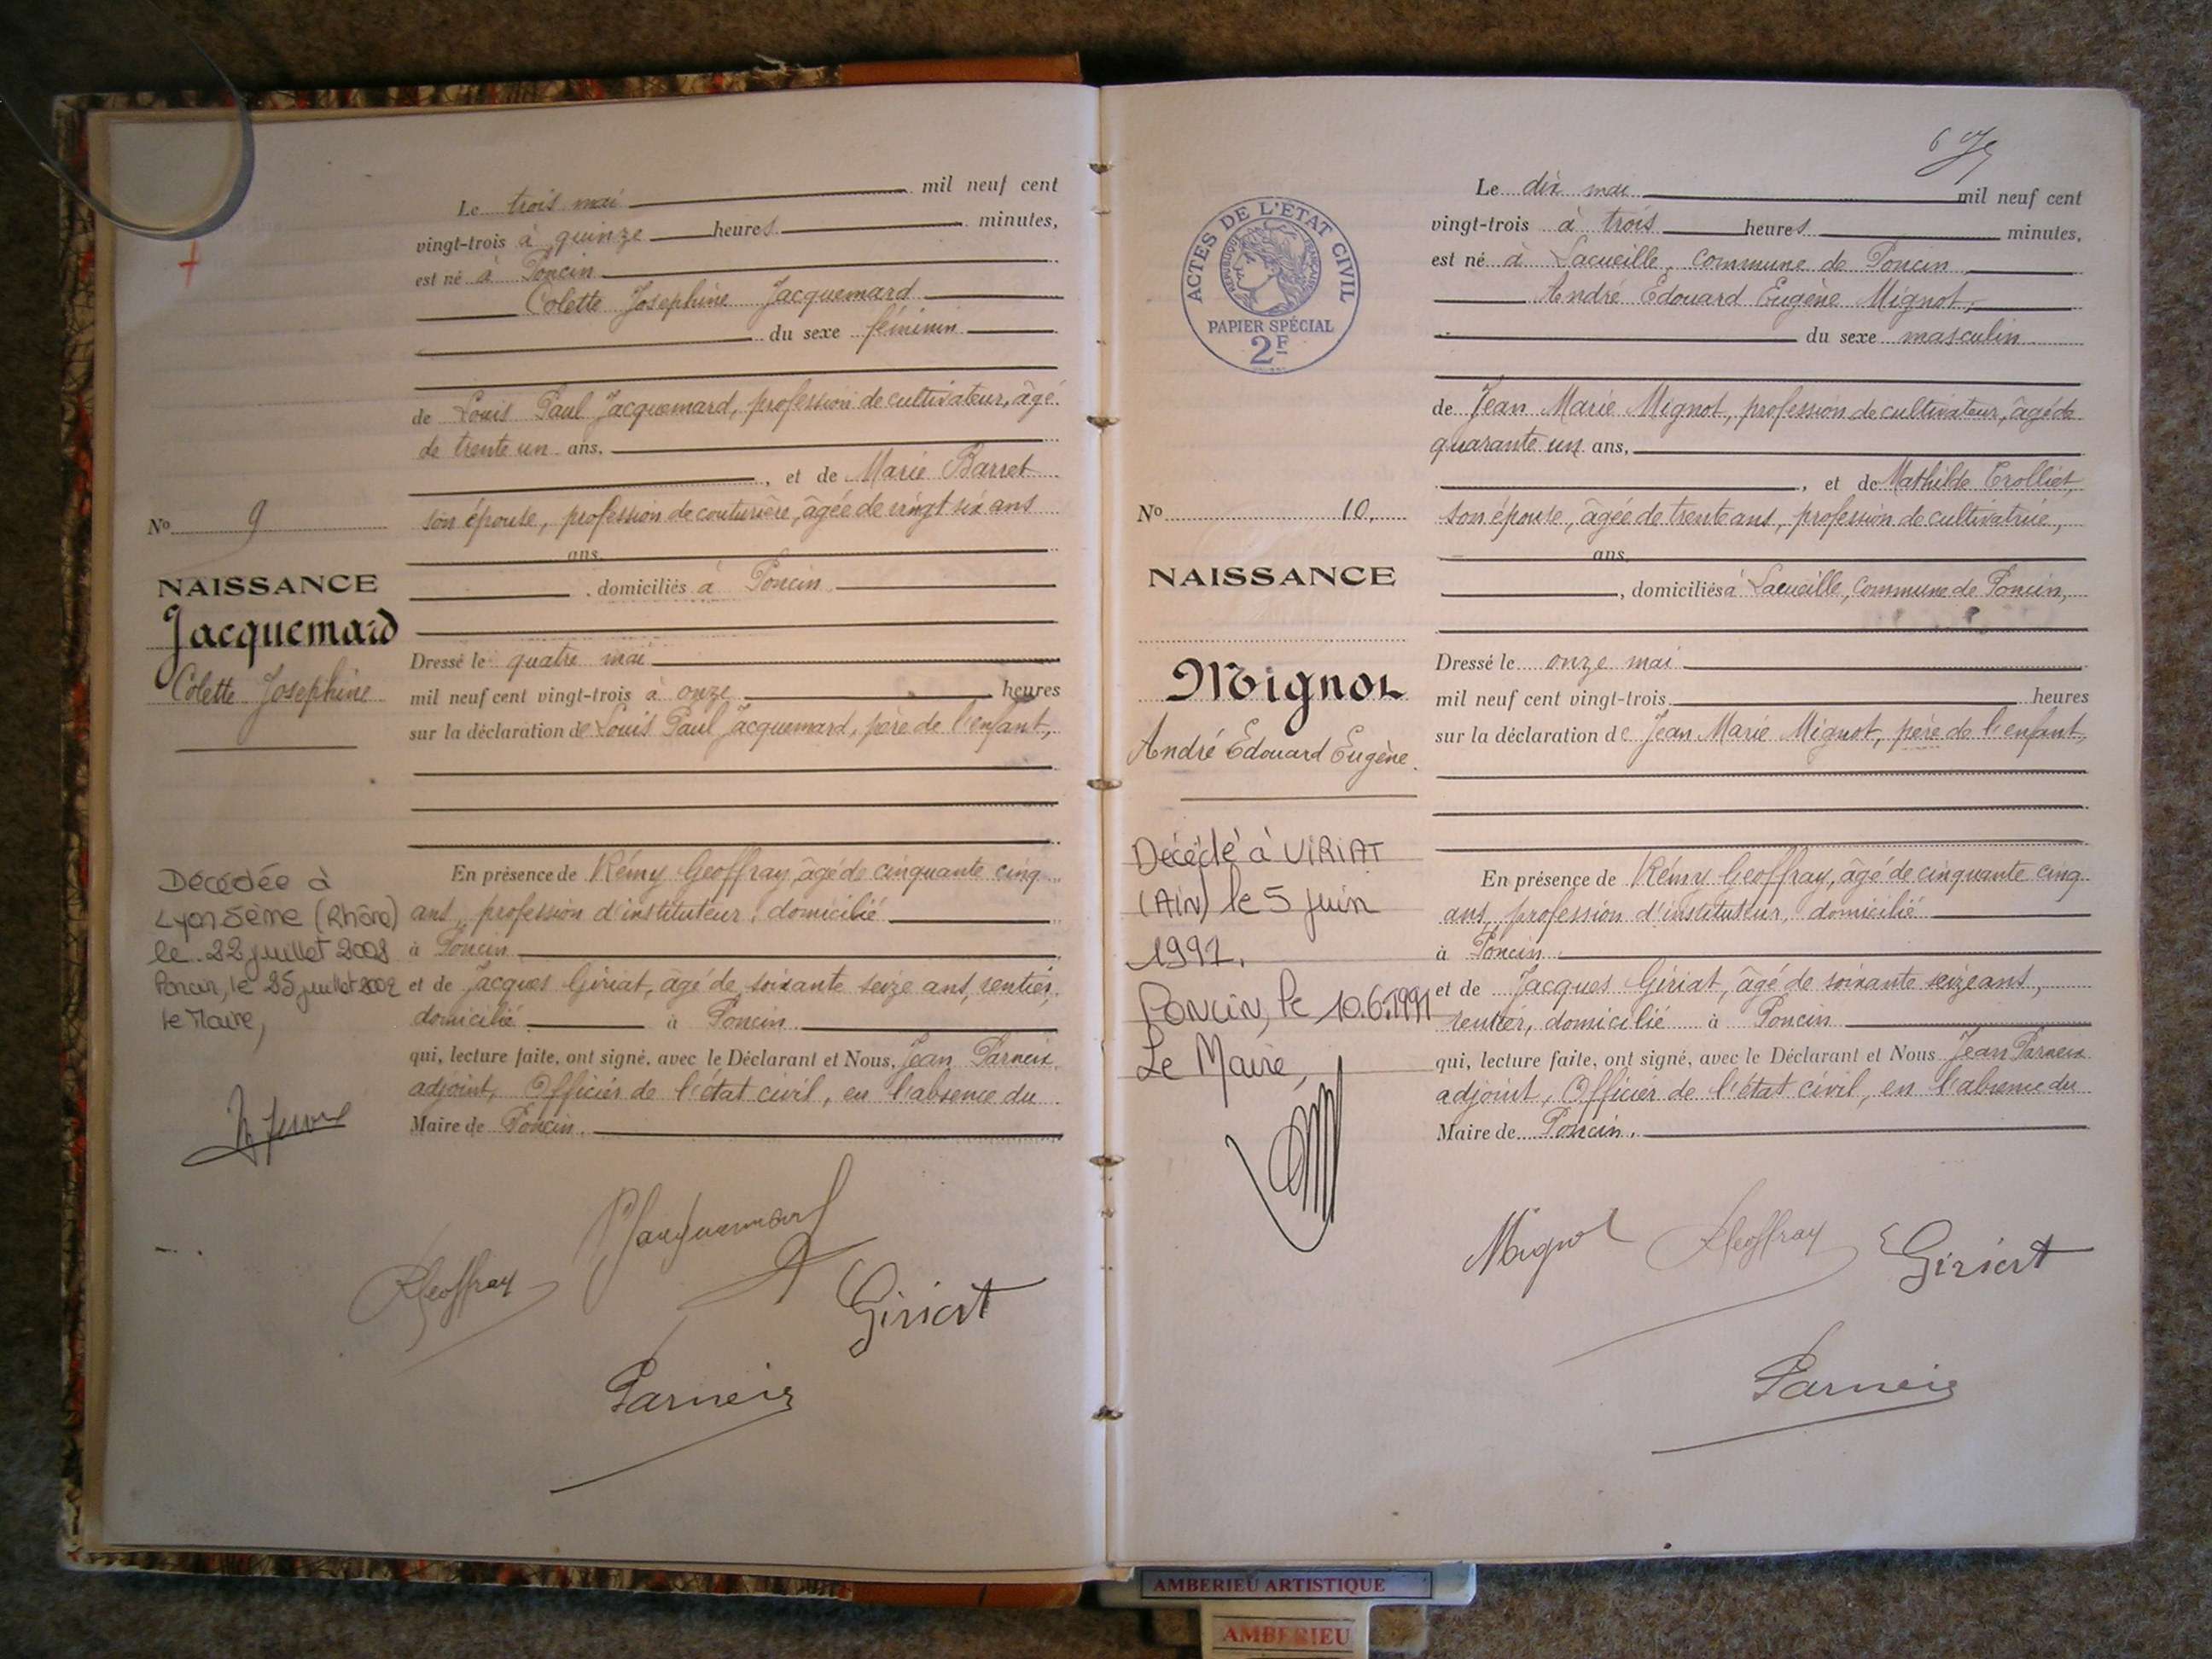 Le trois mai mil neuf cent
vingt-trois à quinze heures minutes,
est né à Poncin
Colette Josephine Jacquemard
du sexe féminin
de Louis Paul Jacquemard, profession de cultivateur, âgé
de trente un ans,
, et de Marie Barret
son épouse, profession de couturière, âgée de vingt six ans
ans,
, domiciliés à Poncin
Dressé le quatre mai
mil neuf cent vingt-trois à onze heures
sur la déclaration de Louis Paul Jacquemard, père de l'enfant,
En présence de Rémy Geoffray, âgé de cinquante cinq
ans, profession d'instituteur, domicilié
à Poncin
et de Jacques Giriat, âgé de soixante seize ans, rentier,
domicilié à Poncin
qui, lecture faite, ont signé, avec le Déclarant et Nous, Jean Parneix
adjoint, Officier de l'état civil, en l'absence du
Maire de Poncin
No 9
NAISSANCE
Jacquemard
Colette Josephine
Décédée à
Lyon 5ème (Rhône)
le 22 juillet 2002
Poncin, le 25 juillet 2002
le Maire,
Jacquemard
RGeoffray
Giriat
Parneix
Le dix mai mil neuf cent
vingt-trois à trois heures minutes,
est né à Lacueille, commune de Poncin
André Edouard Eugène Mignot,
du sexe masculin
de Jean Marie Mignot, profession de cultivateur, âgé de
quarante un ans,
, et de Mathilde Trolliet,
son épouse, âgée de trente ans, profession de cultivatrice,
ans,
, domiciliés à Lacueille, commune de Poncin,
Dressé le onze mai
mil neuf cent vingt-trois heures
sur la déclaration de Jean Marie Mignot, père de l'enfant,
En présence de Rémy Geoffray, âgé de cinquante cinq
ans, profession d'instituteur, domicilié
à Poncin
et de Jacques Giriat, âgé de soixante seize ans,
rentier, domicilié à Poncin
qui, lecture faite, ont signé, avec le Déclarant et Nous Jean Parneix
adjoint, Officier de l'état civil, en l'absence du
Maire de Poncin.
ACTES DE L'ETAT CIVIL
REPUBLIQUE FRANÇAISE
PAPIER SPÉCIAL
2F
No 10,
NAISSANCE
Mignot
André Edouard Eugène.
Décédé à VIRIAT
(AIN) le 5 juin
1991.
PONCIN, le 10.6.1991
Le Maire,
Mignot RGeoffray Giriat
Parneix
AMBERIEU ARTISTIQUE
AMBERIEU